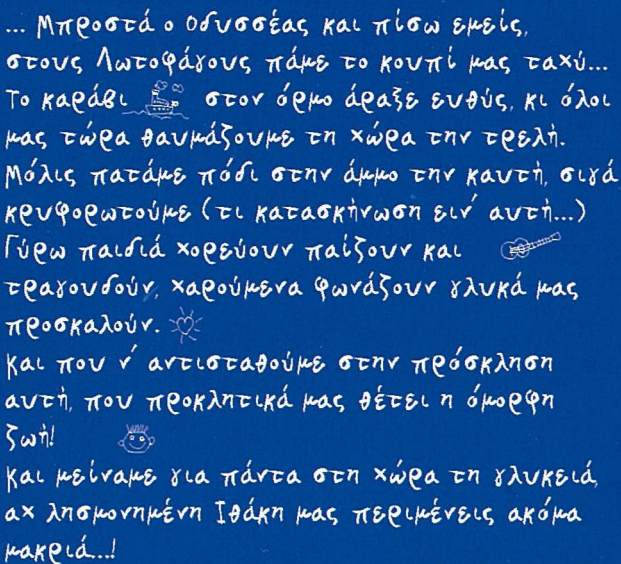 ... Μπροστά ο Οδυσσέας και πίσω εμείς,
στους Λωτοφάγους πάμε το κουπί μας ταχύ...
Το καράβι στον όρμο άραξε ευθύς, κι όλοι
μας τώρα θαυμάζουμε τη χώρα την τρελή.
Μόλις πατάμε πόδι στην άμμο την καυτή, σιγά
κρυφορωτούμε (τι κατασκήνωση ειν' αυτή...)
Γύρω παιδιά χορεύουν παίζουν και
τραγουδούν, χαρούμενα φωνάζουν γλυκά μας
προσκαλούν.
Και που ν' αντισταθούμε στην πρόσκληση
αυτή, που προκλητικά μας θέτει η όμορφη
ζωή!
Και μείναμε για πάντα στη χώρα τη γλυκειά,
αχ λησμονημένη Ιθάκη μας περιμένεις ακόμα
μακριά...!